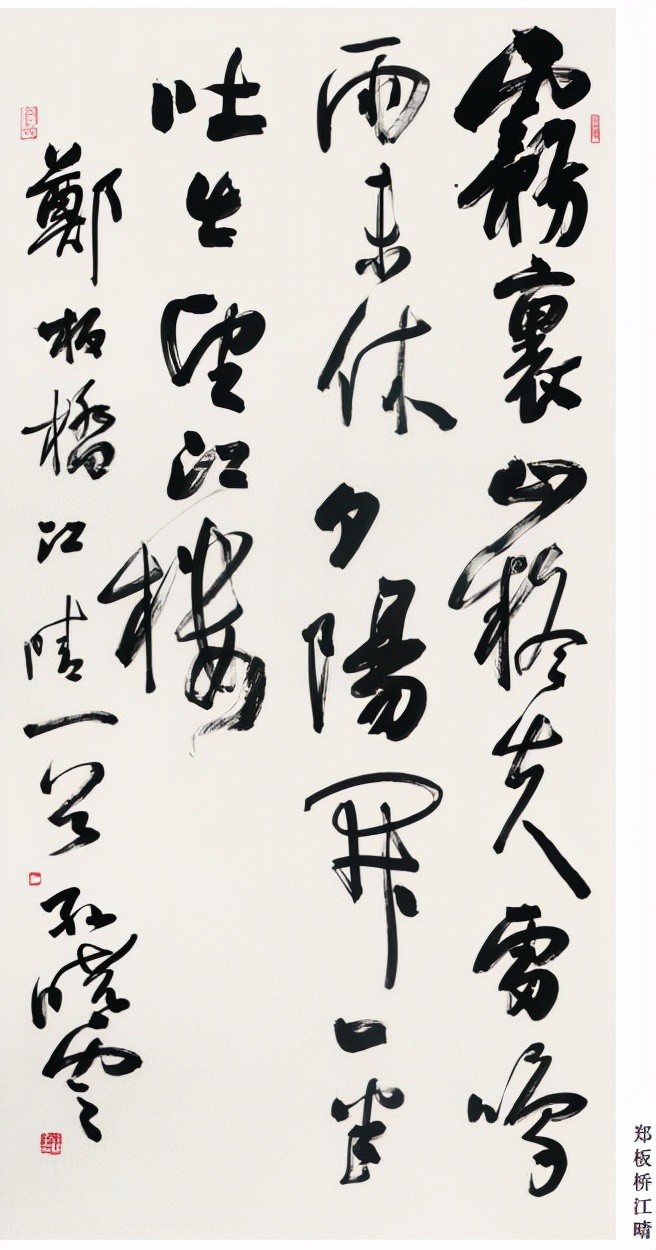 霧裏山疑失雷鳴
雨未休夕陽開一半
吐出望江樓
鄭板橋江晴一首 孫曉雲
郑板桥江晴